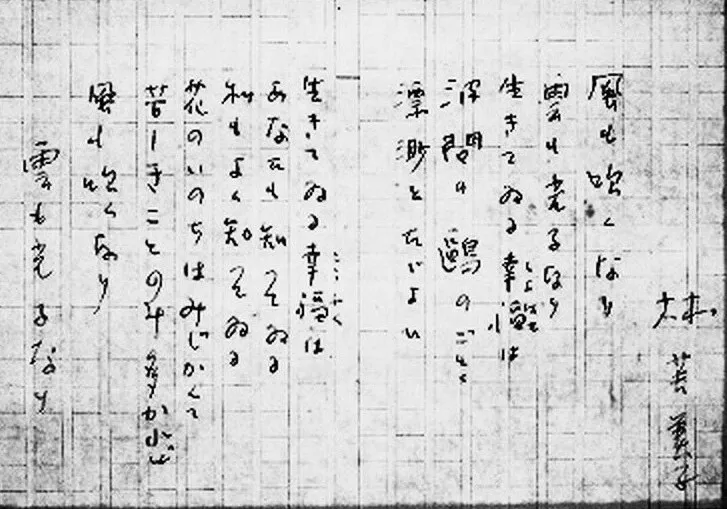 林芙美子
風も吹くなり
雲も光るなり
生きてゐる幸福は
波間の鷗のごとく
漂渺とたゞよい
生きてゐる幸福は
あなたも知つてゐる
私もよく知つてゐる
花のいのちはみじかくて
苦しきことのみ多かれど
風も吹くなり
雲も光るなり